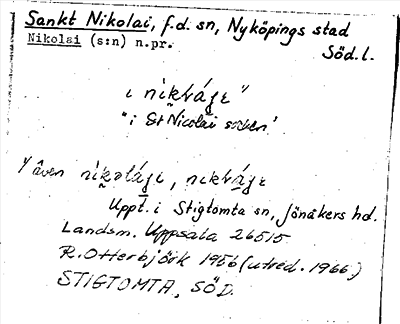 Sankt Nikolai, f.d. sn, Nyköpings stad
Nikolai (s:n) n.pr.
Söd.l.
i nikváge"
"i St Nicolai socken'
även nikolági, nikváge
Uppt. i Stigtomta sn, Jönåkers hd.
Landsm. Uppsala 26515
R. Otterbjörk 1956 (utred. 1966)
STIGTOMTA, SÖD.